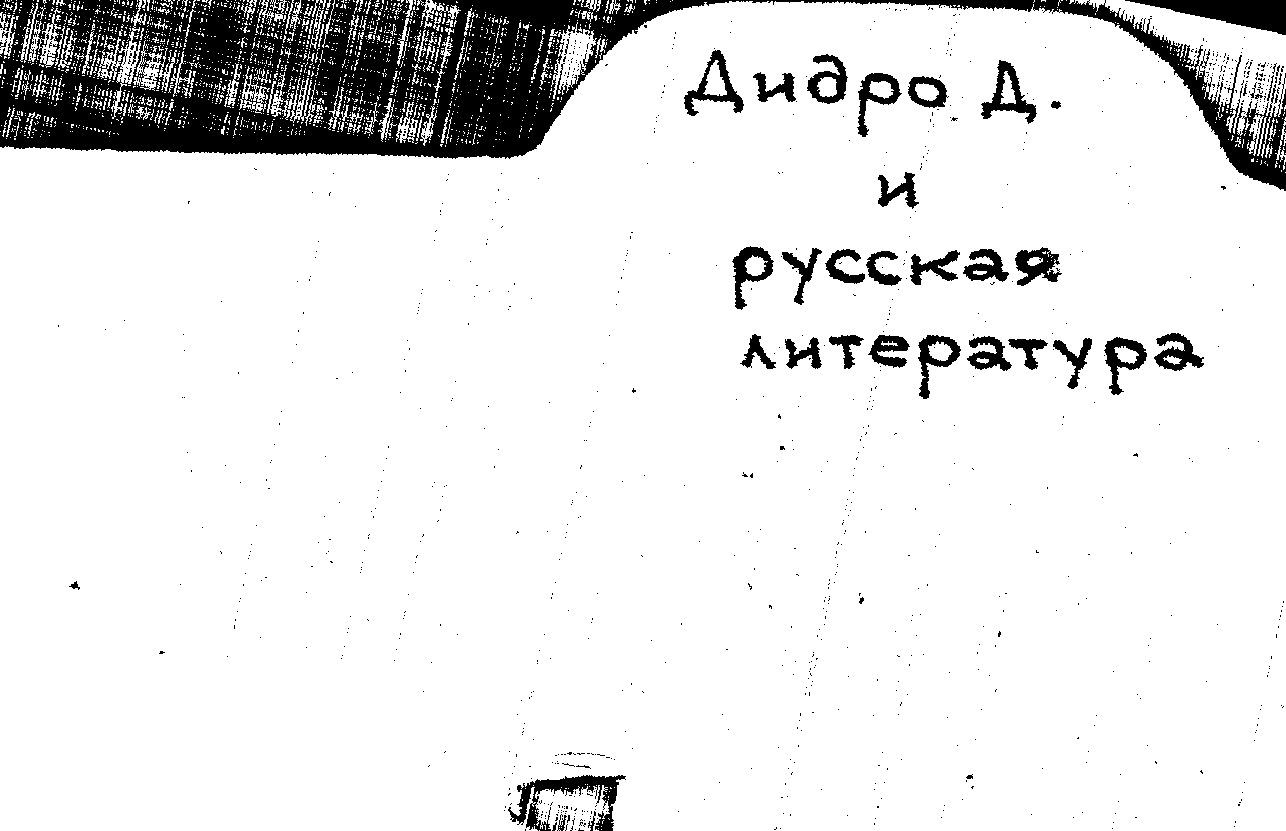 Дидро Д.
и
русская
литература